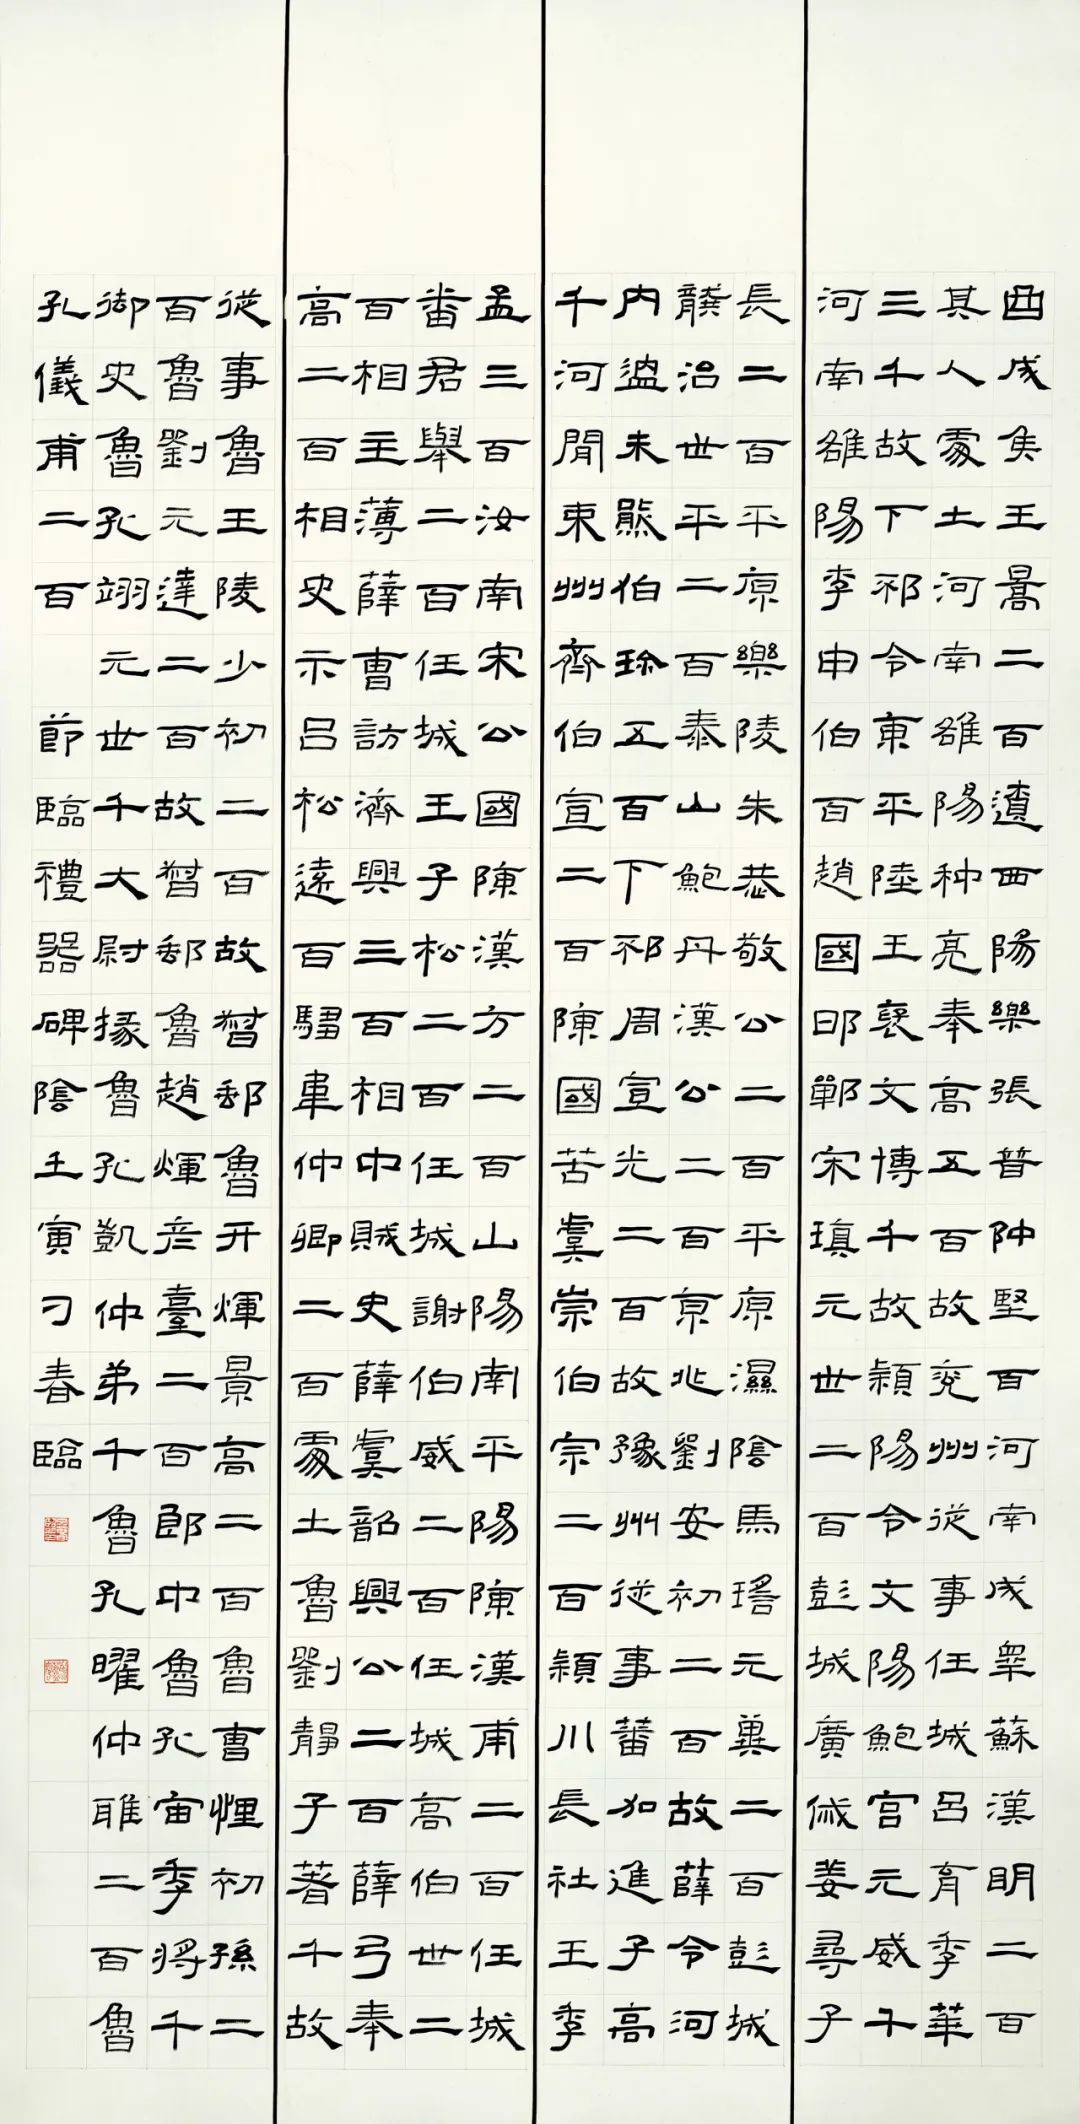 曲成矦王暠二百遼西陽樂張普仲堅百河南成睪蘇漢明二百
其人處土河南雒陽种亮奉高五百故兖州從事任城呂育季華
三千故下邳令東平陸王褒文博千故潁陽令文陽鮑宮元威千
河南雒陽李申伯百趙國邯鄲宋瑱元世二百彭城廣戚姜尋子
長二百平原樂陵朱恭敬公二百平原濕陰馬瑤元冀二百彭城
龔治世平二百泰山鮑丹漢公二百京兆劉安初二百故薛令河
內溫朱熊伯珍五百下邳周宣光二百故豫州從事蕃加進子高
千河閒束州齊伯宣二百陳國苦虞崇伯宗二百潁川長社王季
孟三百汝南宋公國陳漢方二百山陽南平陽陳漢甫二百任城
番君舉二百任城王子松二百任城謝伯威二百任城高伯世二
百相主薄薛曹訪濟興三百相中賊史薛虞韶興公二百薛弓奉
高二百相史卞呂松遠百騶韋仲卿二百處土魯劉靜子著千故
從事魯王陵少初二百故督郵魯开煇景高二百魯曹悝初孫二
百魯劉元達二百故督郵魯趙煇彥臺二百郎中魯孔宙季將千
御史魯孔翊元世千大尉掾魯孔凱仲弟千魯孔曜仲雅二百魯
孔儀甫二百 節臨禮器碑陰壬寅刁春臨